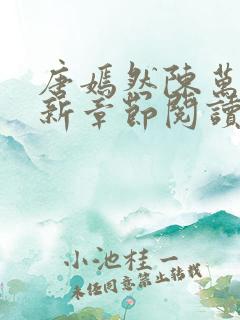 唐嫣然陳萬
新章節閱讀
小池桂一
未经同意禁止转载